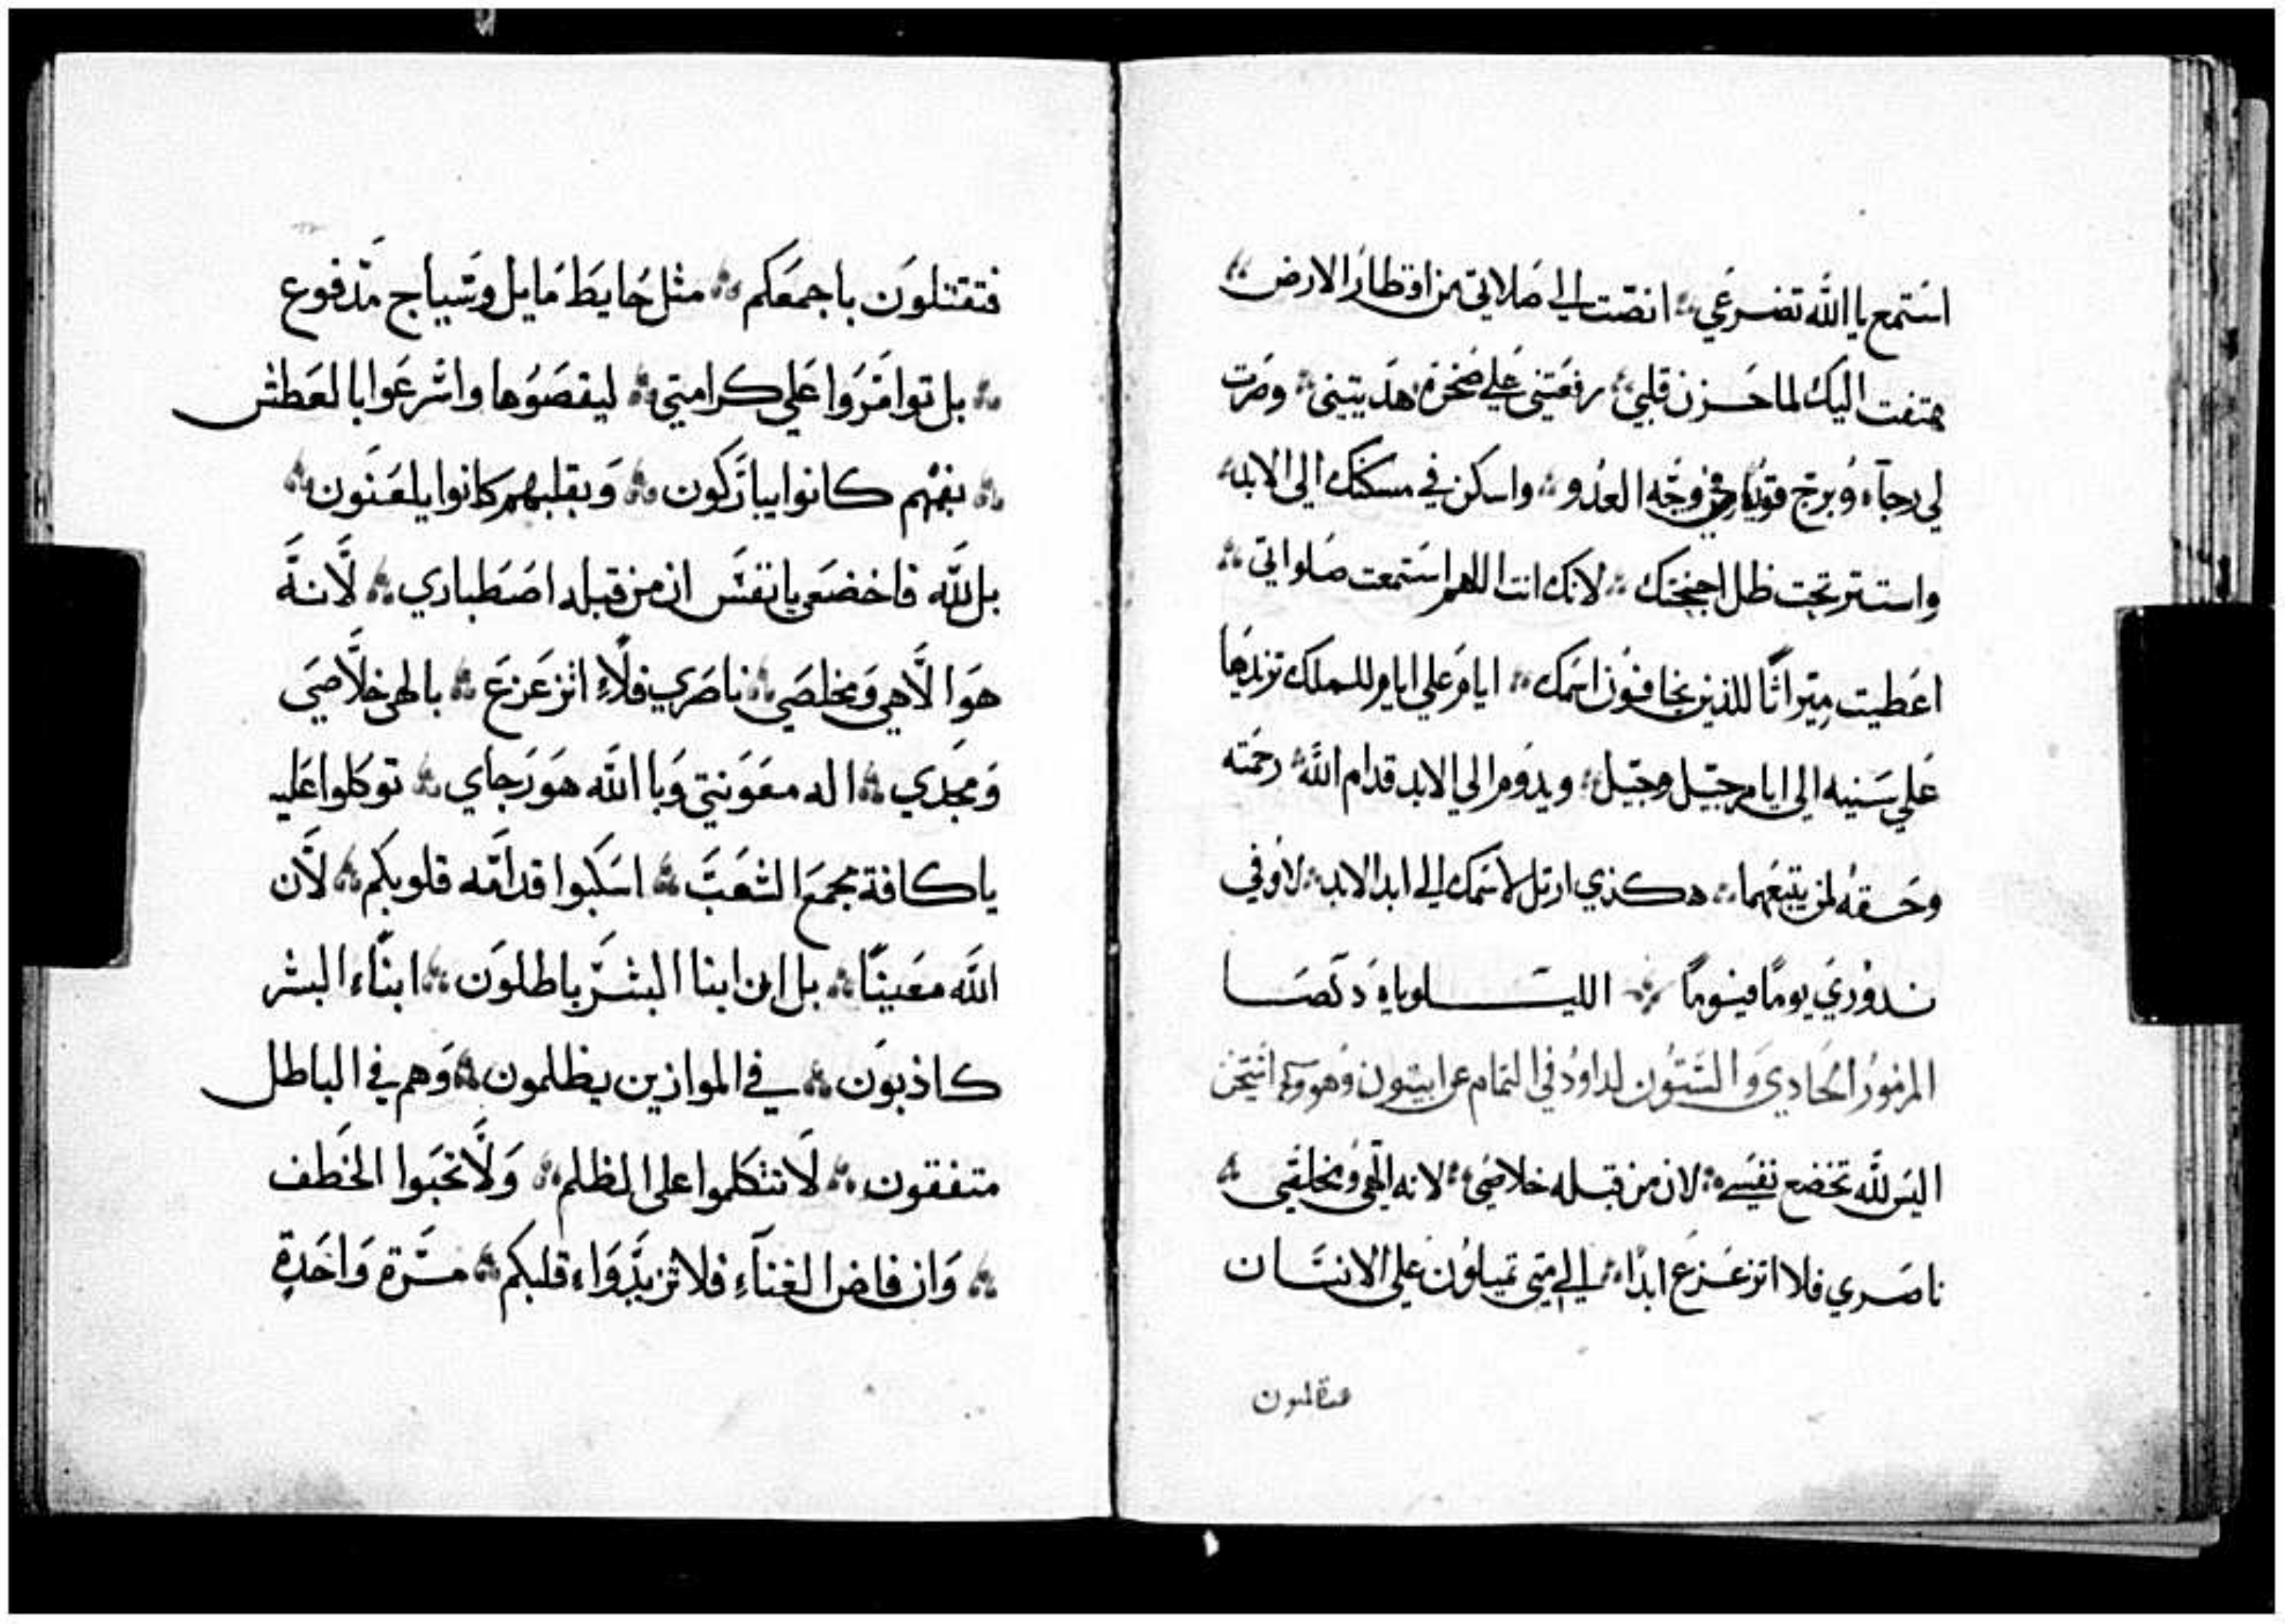 استمع يا الله تضرعي انصت الي صلاتي من اقطار الارض
هتفت اليك لما حزن قلبي رفعتني علي صخرة هديتني وصرت
لي رجآء وبرج قوي في وجه العدو واسكن في مسكنك الي الابد
واستتر تحت ظل اجنحتك لانك انت اللهم استمعت صلواتي
اعطيت ميراثا للذين يخافون اسمك ايام علي ايام للملك تزيدها
علي سنيه الي ايام جيل وجيل ويدوم الي الابد قدام الله رحمته
وحقه لمن يتبعهما هكذي ارتل لاسمك الي ابد الابد لاوفي
نذوري يوما فيوما الليلوياه
المزمور الحادي والستون لداوود في التمام عن ايبتون وهو
اليس لله تخضع نفسي لان من قبله خلاصي لانه الهي ومخلصي
ناصري فلا اتزعزع ابدا الي متي تميلون علي الانسان
فتقتلون باجمعكم مثل حايط مايل وسياج مدفوع
بل توامروا علي كرامتي ليقصوها واسرعوا بالعطش
بفمهم كانوا يباركون وبقلبهم كانوا يلعنون
بل لله فاخضعي يا نفس ان من قبله اصطباري لانه
هو الاهي ومخلصي ناصري فلا اتزعزع بالهي خلاصي
ومجدي اله معونتي وبا الله هو رجاي توكلوا عليه
يا كافة مجمع الشعب اسكبوا قدامه قلوبكم لان
الله معيننا بل ان ابنا البشر باطلون ابناء البشر
كاذبون في الموازين يظلمون وهم في الباطل
متفقون لا تتكلموا علي الظلم ولا تحبوا الخطف
وان فاض الغناء فلا تزيدوا قلبكم مرة واحدة